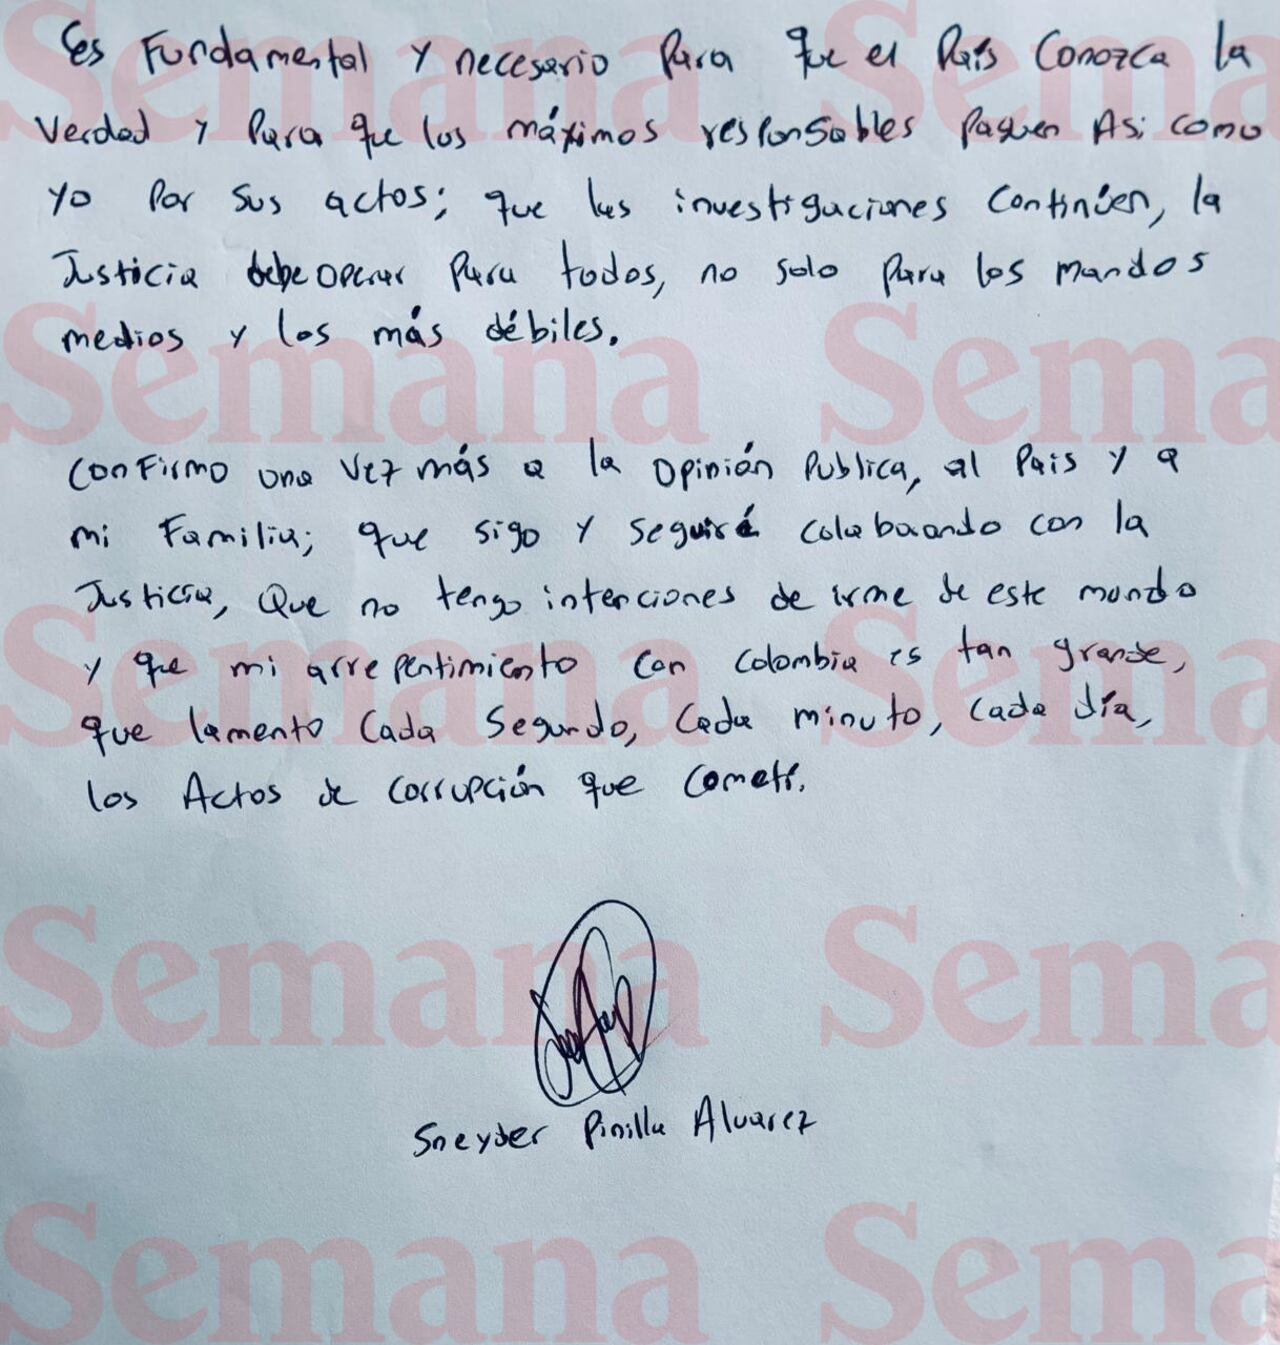 Es Fundamental y necesario Para que el País Conozca la
Verdad y Para que los máximos responsables paguen Asi como
yo Por sus actos; que las investigaciones Continúen, la
Justicia debe operar Para todos, no solo para los mandos
medios y los más débiles.
Confirmo una vez más a la Opinión Publica, al Pais y a
mi Familia; que sigo y seguiré colaborando con la
Justicia, Que no tengo intenciones de irme de este mundo
y que mi arrepentimiento con Colombia es tan grande,
que lamento Cada Segundo, Cada minuto, cada día,
los Actos de corrupción que Cometí.
Sneyder Pinilla Alvarez
Semana Sema
Semana Sema
Semana Sema
Semana Sema
Semana Sema